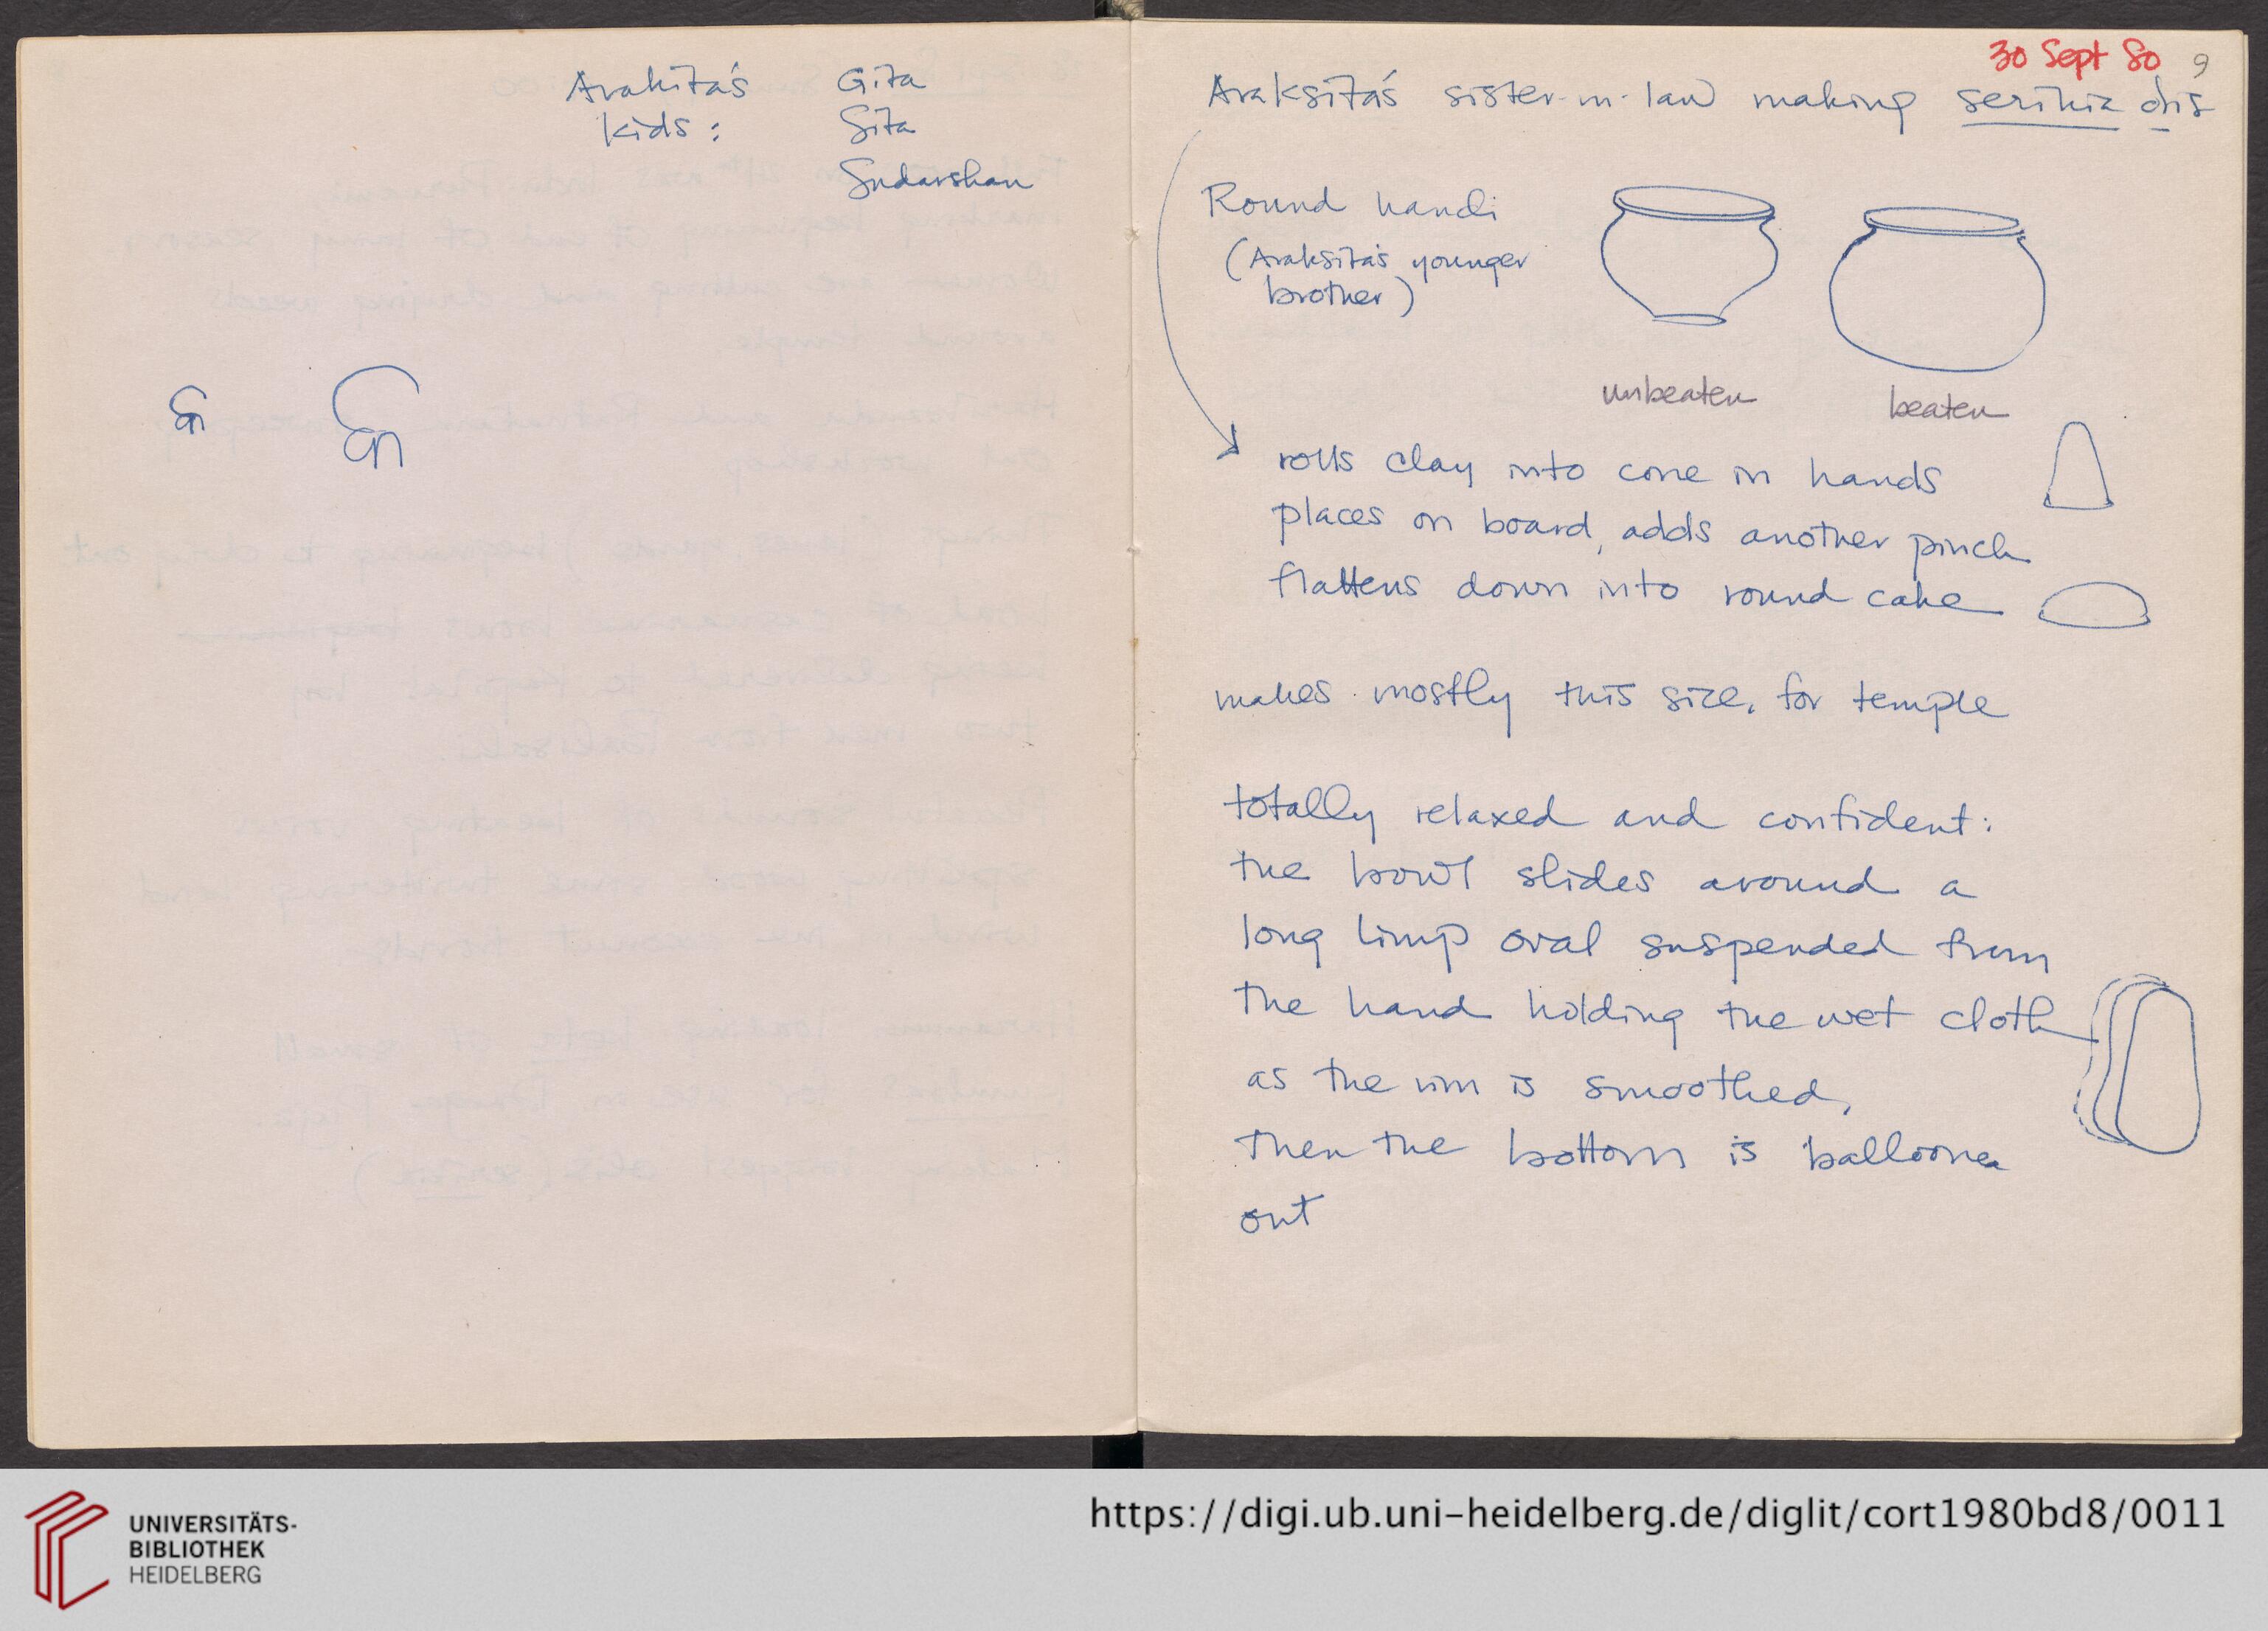 Arakita's Gita
kids: Sita
Sudarshan
30 Sept 80 9
Araksita's sister-in-law making serihia dis
Round handi
(Araksita's younger
brother)
unbeaten
beaten
rolls clay into cone in hands
places on board, adds another pinch
flattens down into round cake
makes mostly this size, for temple
totally relaxed and confident:
the bowl slides around a
long limp oval suspended from
the hand holding the wet cloth
as the rim is smoothed,
then the bottom is ballooned
out
UNIVERSITÄTS-
BIBLIOTHEK
HEIDELBERG
https://digi.ub.uni-heidelberg.de/diglit/cort1980bd8/0011